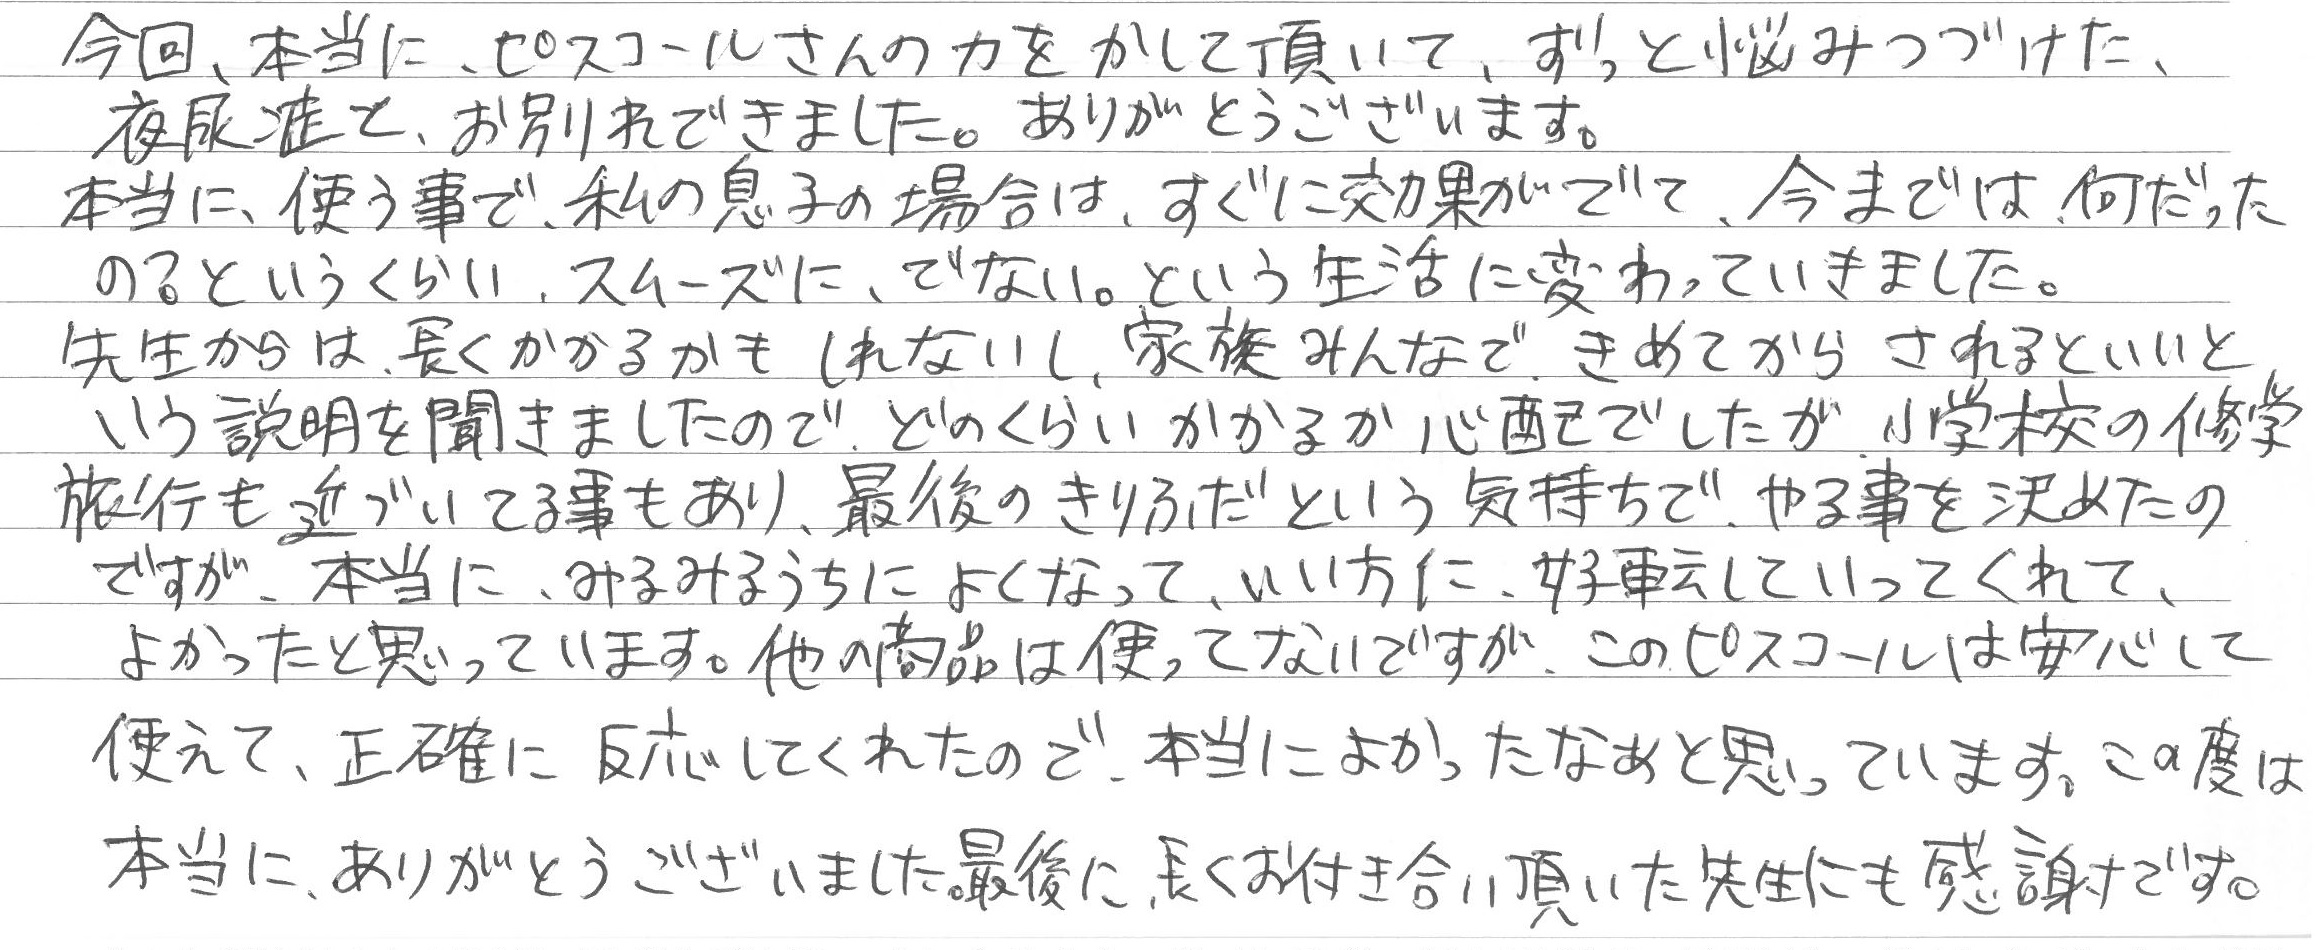 今回、本当に、ピスコールさんの力をかして頂いて、ずっと悩みつづけた、
夜尿症と、お別れできました。ありがとうございます。
本当に、使う事で、私の息子の場合は、すぐに効果がでて、今までは、何だった
のるというくらい、スムーズに、でない。という生活に変わっていきました。
先生からは、長くかかるかもしれないし、家族みんなで、きめてからされるといいと
いう説明を聞きましたので、どのくらいかかるか心配でしたが、小学校の修学
旅行も近づいてる事もあり、最後のきりふだという気持ちで、やる事を決めたの
ですが、本当に、みるみるうちによくなって、いい方に、好転していってくれて、
よかったと思っています。他の商品は使ってないですが、このピスコールは安心して
使えて、正確に反応してくれたので、本当によかったなあと思っています。この度は
本当に、ありがとうございました。最後に、長くお付き合い頂いた先生にも感謝です。